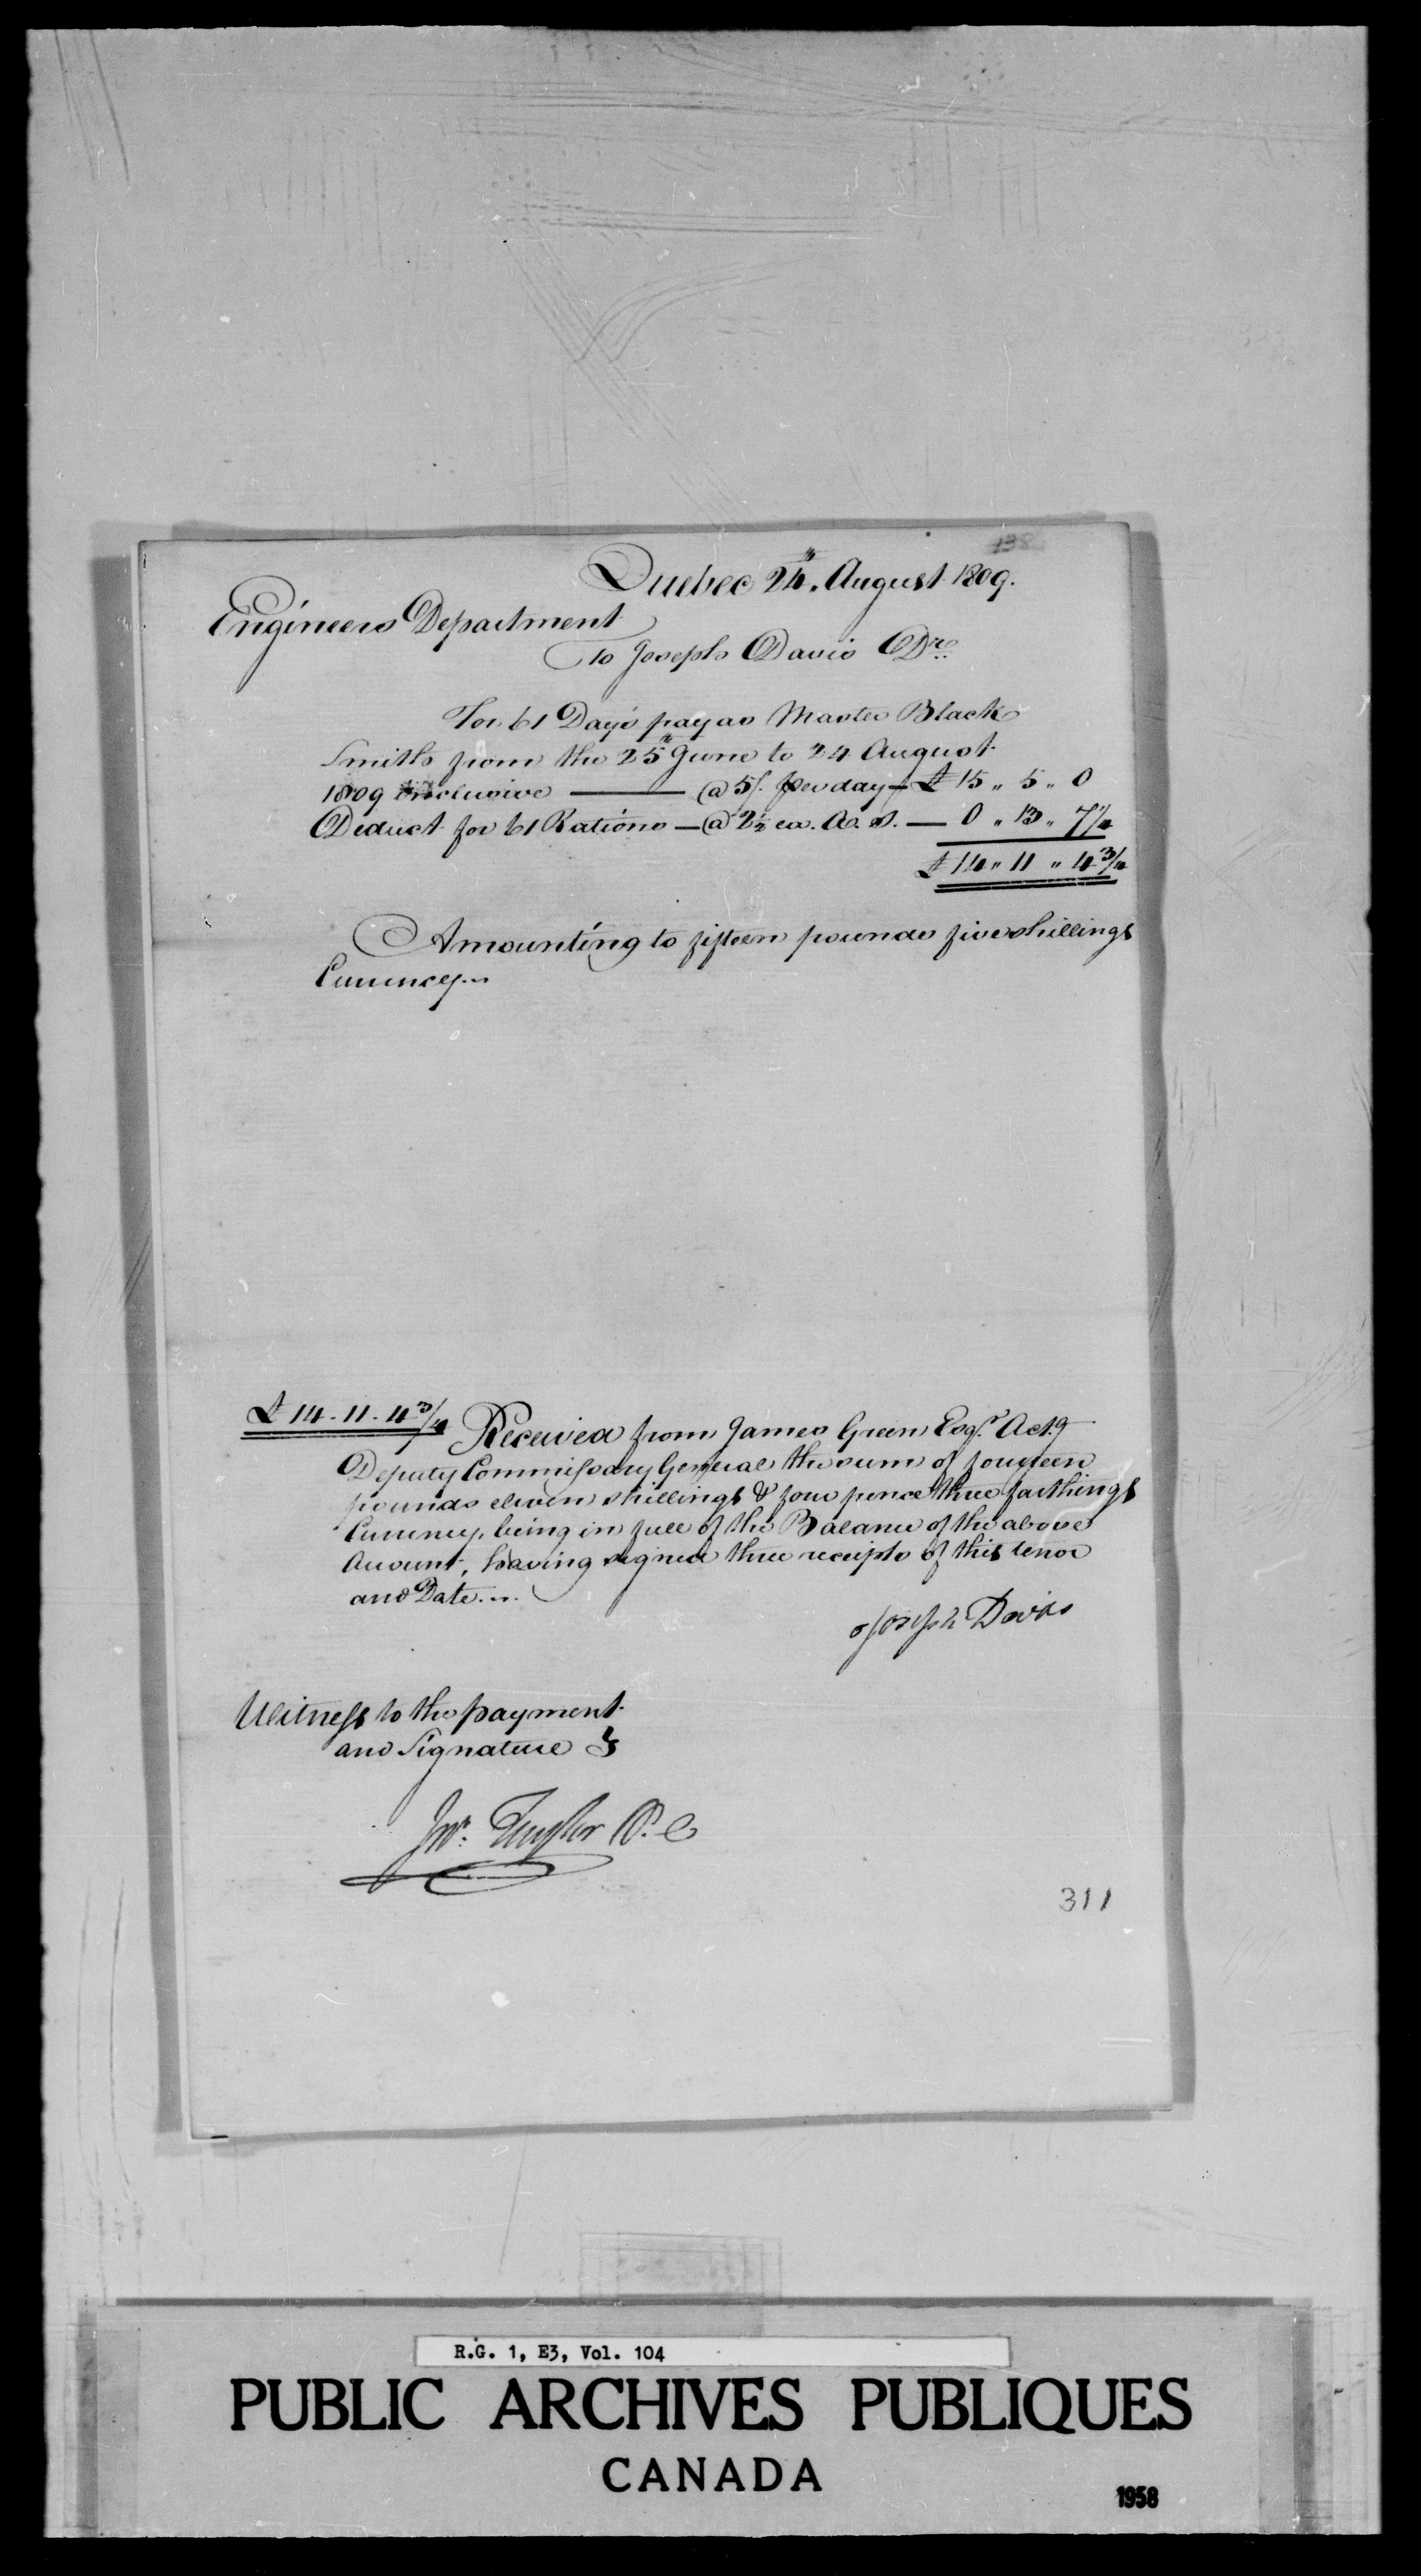 Quebec 24.th August 1809.
Engineers Department
To Joseph Davis Dr.
For 61 Day's pay as Master Black
Smith from the 25th June to 24 August
1809 inclusive — @ 5/. per day — £ 15 " 5 " 0
Deduct for 61 Rations — @ 2½ ea. A. S. — 0 " 13 " 7¼
£ 14 " 11 " 4¾
Amounting to fifteen pounds five shillings
Currency...
£ 14 - 11 - 4¾ Received from James Green Esqr. Actg
Deputy Commissary General the sum of fourteen
pounds eleven shillings & four pence three farthings
Currency, being in full of the Balance of the above
Account, having signed three receipts of this tenor
and Date...
Joseph Davis
Witness to the payment
and Signature }
Jno. Taylor
311
R.G. 1, E3, Vol. 104
PUBLIC ARCHIVES PUBLIQUES
CANADA
1958